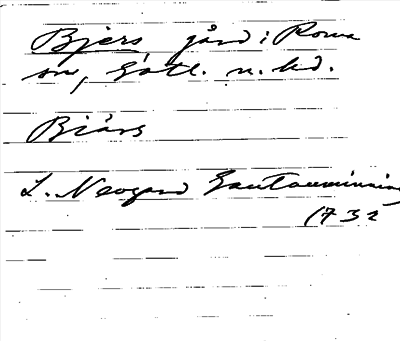 Bjers, gård i Roma
sn, Gotl. n. hd.
Biärs
L. Neogard Gautauminning
1732